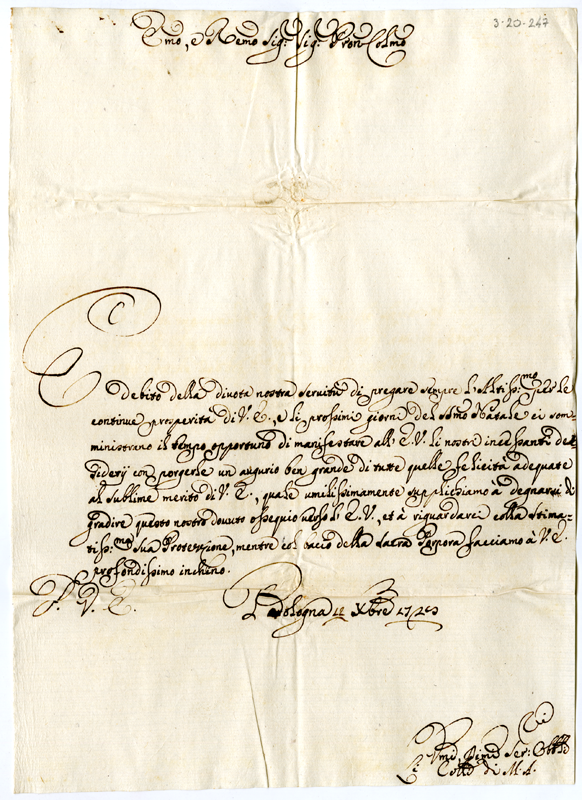 3-20-247
Emo, e Remo Sig: Sig: Pron Colmo
È debito della divota nostra servitù di pregare sempre l'Altiss:mo per le
continue prosperità di V. E., e li prossimi giorni del Smo Natale ci som
ministrano il tempo opportuno di manifestare all' E. V. li nostri incessanti de
siderij con porgerle un augurio ben grande di tutte quelle felicità adequate
al sublime merito di V. E., quale umilissimamente supplichiamo à degnarsi di
gradire questo nostro dovuto ossequio verso l' E. V., et à riguardarci colla stima=
tiss:ma Sua Protezzione, mentre col bacio della Sacra Porpora facciamo à V. E.
profondissimo inchino.
D. V. E.
Bologna 18 Xbre
Umi, Dimi Ser:
di M. A.